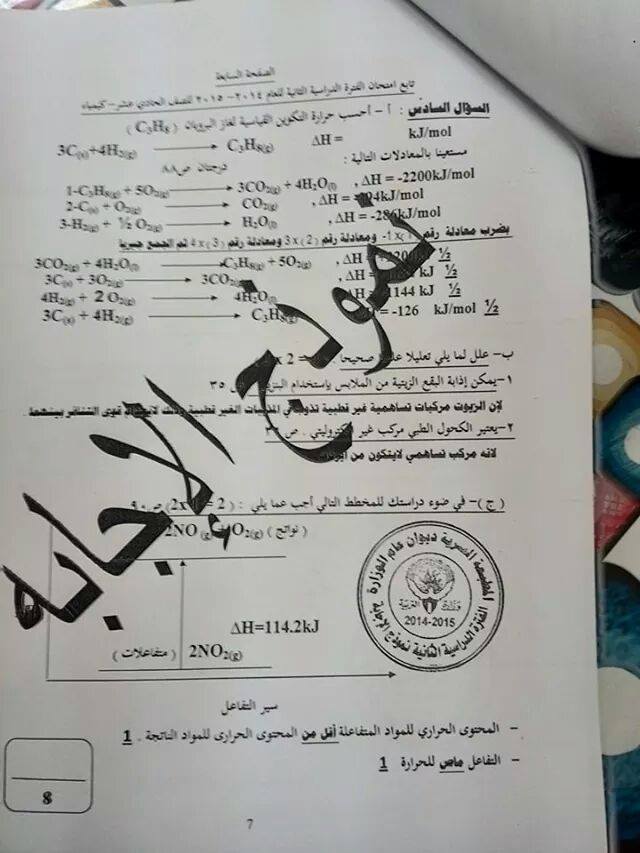 الصفحة السابعة
تابع امتحان الفترة الدراسية الثانية للعام ٢٠١٤-٢٠١٥ للصف الحادي عشر - كيمياء
السؤال السادس : أ - أحسب حرارة التكوين القياسية لغاز البروبان ( C₃H₈ )
3C(s)+4H₂(g) → C₃H₈(g) ΔH = kJ/mol
مستعينا بالمعادلات التالية : درجتان ص٨٨
1-C₃H₈(g) + 5O₂(g) → 3CO₂(g) + 4H₂O(l) , ΔH = -2200kJ/mol
2-C(s) + O₂(g) → CO₂(g) , ΔH = 94kJ/mol
3-H₂(g) + ½ O₂(g) → H₂O(l) , ΔH = -286kJ/mol
بضرب معادلة رقم 1- x ومعادلة رقم ( 2 ) 3 x ومعادلة رقم ( 3 ) 4 x ثم الجمع جبريا
3CO₂(g) + 4H₂O(l) → C₃H₈(g) + 5O₂(g) , ΔH ½
3C(s) + 3O₂(g) → 3CO₂ , ΔH kJ ½
4H₂(g) + 2 O₂(g) → 4H₂O(l) 1144 kJ ½
3C(s) + 4H₂(g) → C₃H₈(g) = -126 kJ/mol ½
ب- علل لما يلي تعليلا صحيحا x 2 =
١-يمكن إذابة البقع الزيتية من الملابس بإستخدام ص ٣٥
لإن الزيوت مركبات تساهمية غير قطبية الغير قطبية قوى التنافر بينهما .
٢-يعتبر الكحول الطبي مركب غير إلكتروليتي . ص
لانه مركب تساهمي لايتكون من
( ج )- في ضوء دراستك للمخطط التالي أجب عما يلي : ( 2 = 2x )
2NO(g) O₂(g) ( نواتج )
ΔH=114.2kJ
( متفاعلات ) 2NO₂(g)
سير التفاعل
- المحتوى الحراري للمواد المتفاعلة أقل من المحتوى الحرارى للمواد الناتجة . 1
- التفاعل ماص للحرارة 1
8
7
نموذج الإجابة
المطبعة السرية ديوان عام الوزارة
وزارة التربية
2014-2015
الفترة الدراسية الثانية نموذج الإجابة